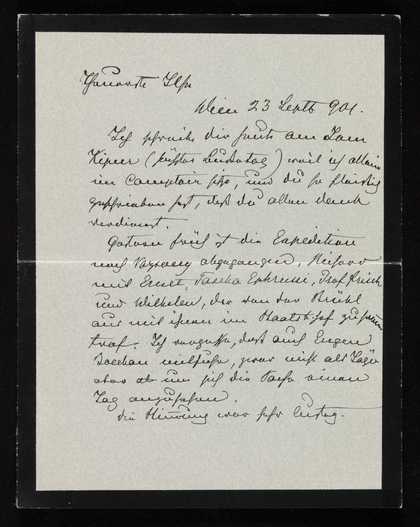 Theuerste Ilse
Wien 23 Septb 901.
Ich schreibe dir heute am Jom
Kipur (suchster Bußtag) weil ich allein
im Comptoir sitze, und du so fleissig
geschrieben hast, daß du allen Dank
verdienst.
Gestern früh ist die Expedition
nach abgegangen,
mit Ernst, Ephrussi, Prof.
und Wilhelm, der von der Brühl
aus mit ihnen im Staatsbhof zusammen
traf. Ich vergaß, daß auch Eugen
mitfuhr, zwar nicht als Jäger
aber um sich die Sache einen
Tag anzusehen.
Die Stimmung war sehr lustig.